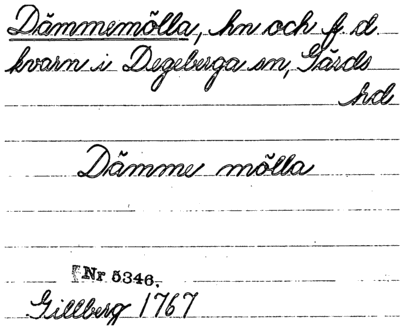 Dämmemölla, hn och f. d.
kvarn i Degeberga sn, Gärds
hd
Dämme mölla
Nr 5346.
Gillberg 1767